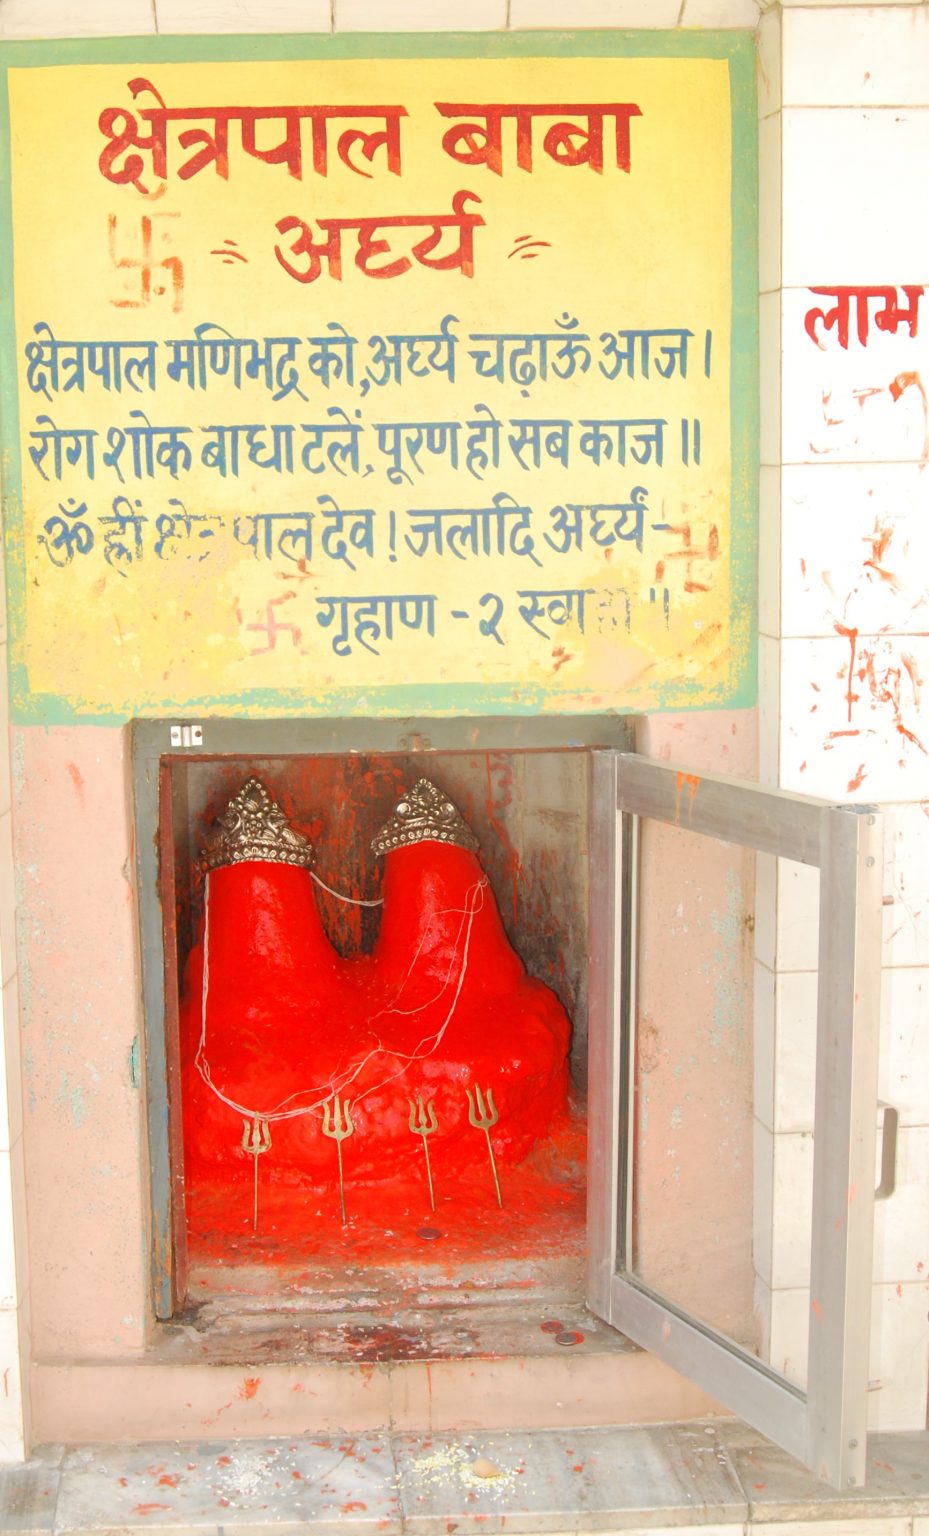 क्षेत्रपाल बाबा
अर्घ्य
क्षेत्रपाल मणिभद्र को, अर्घ्य चढ़ाऊँ आज।
रोग शोक बाधा टलें, पूरण हो सब काज॥
ॐ ह्रीं क्षेत्रपाल देव! जलादि अर्घ्यं-
गृहाण - २ स्वाहा॥
लाभ